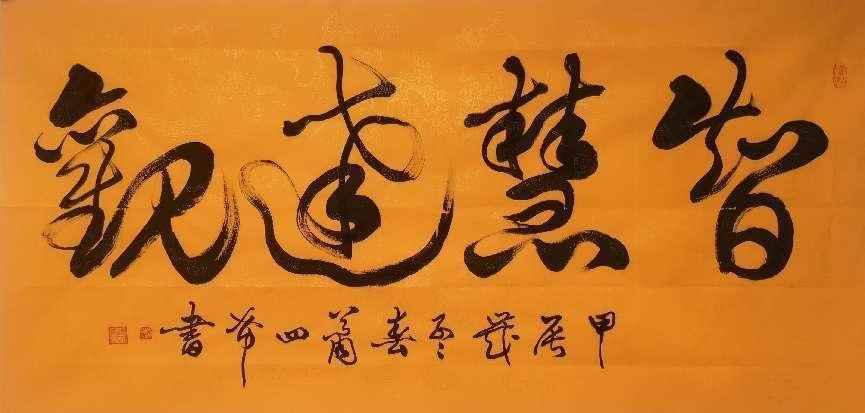 智慧達觀
甲辰歲冬春蕭四芾書